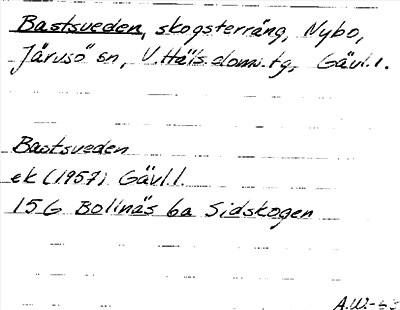 Bastsveden, skogsterräng, Nybo,
Järvsö sn, V. Häls. domv. tg, Gävl. l.
Bastsveden
ek (1957) Gävl. l.
15G Bollnäs 6a Sidskogen
A.W.-65